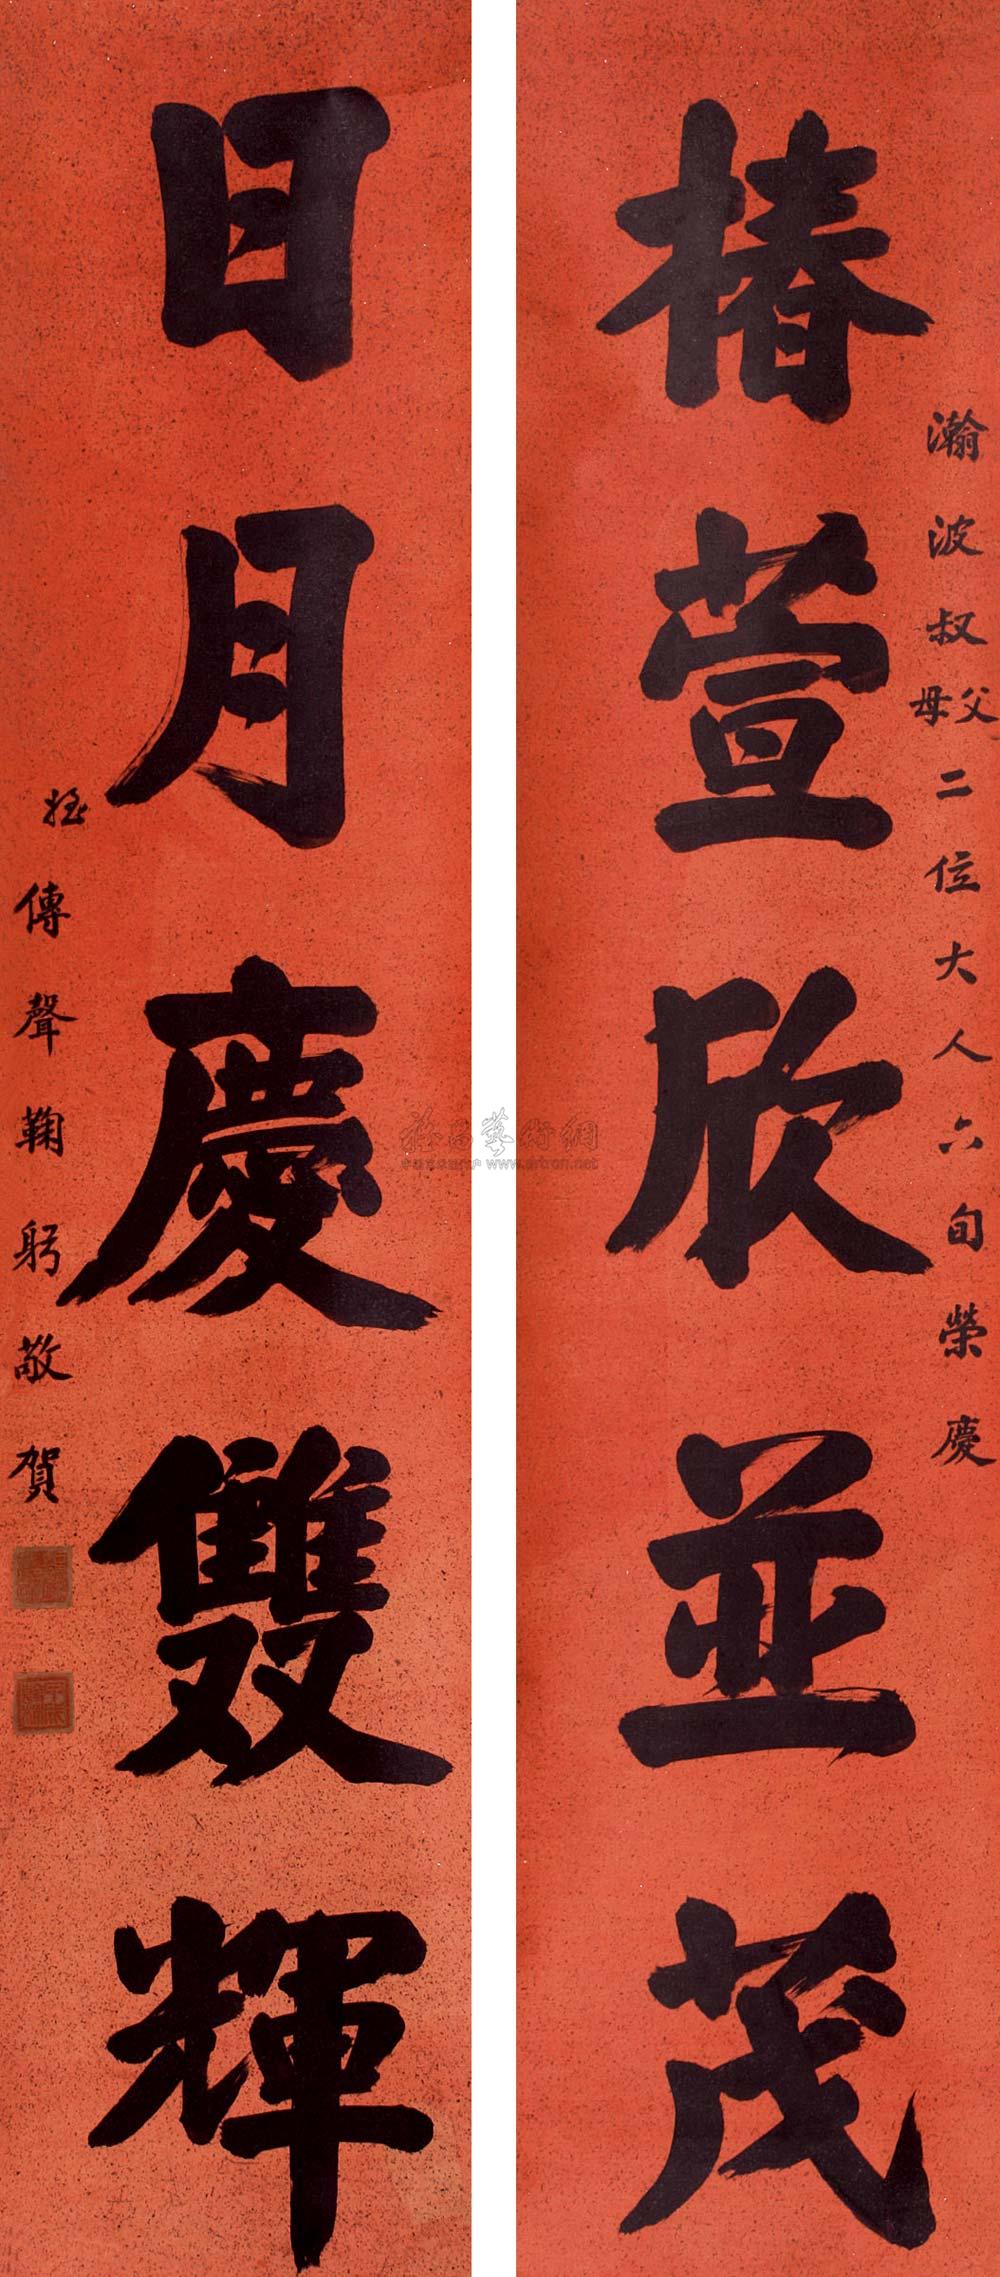 椿萱欣並茂
瀚波叔父母二位大人六旬榮慶
日月慶雙輝
姪傳聲鞠躬敬賀
藝術網
www.artron.net